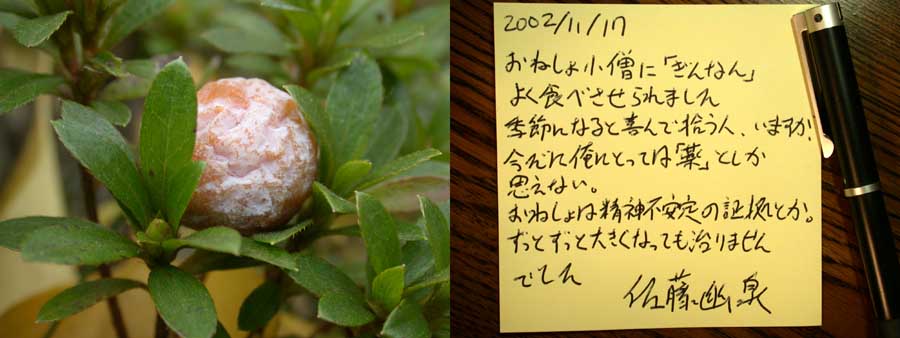 2002/11/17
おねしょ小僧に「ぎんなん」
よく食べさせられました
季節になると喜んで拾う人、いますが
今だに俺にとっては「薬」としか
思えない。
おねしょは精神不安定の証拠とか。
ずっとずっと大きくなっても治りません
でした
佐藤幽泉